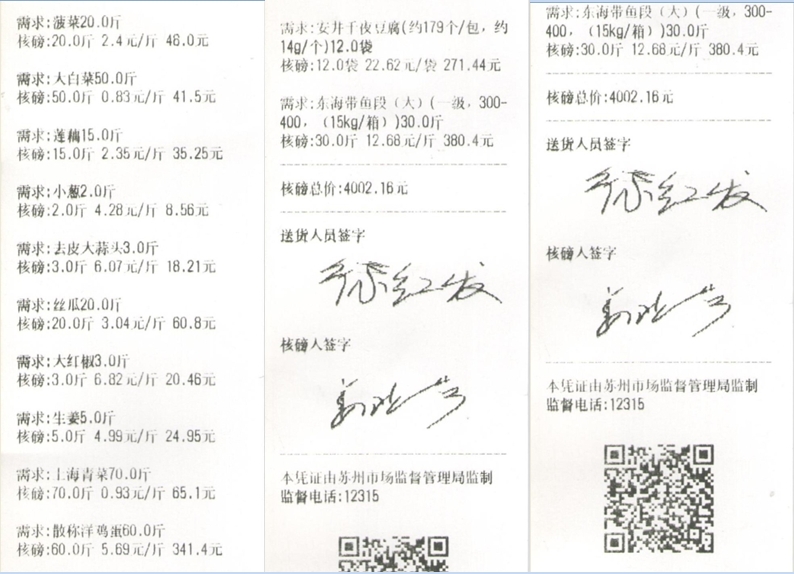 需求:菠菜20.0斤
核磅:20.0斤 2.4元/斤 48.0元
需求:大白菜50.0斤
核磅:50.0斤 0.83元/斤 41.5元
需求:莲藕15.0斤
核磅:15.0斤 2.35元/斤 35.25元
需求:小葱2.0斤
核磅:2.0斤 4.28元/斤 8.56元
需求:去皮大蒜头3.0斤
核磅:3.0斤 6.07元/斤 18.21元
需求:丝瓜20.0斤
核磅:20.0斤 3.04元/斤 60.8元
需求:大红椒3.0斤
核磅:3.0斤 6.82元/斤 20.46元
需求:生姜5.0斤
核磅:5.0斤 4.99元/斤 24.95元
需求:上海青菜70.0斤
核磅:70.0斤 0.93元/斤 65.1元
需求:散称洋鸡蛋60.0斤
核磅:60.0斤 5.69元/斤 341.4元
需求:安井千夜豆腐(约179个/包，约
14g/个)12.0袋
核磅:12.0袋 22.62元/袋 271.44元
需求:东海带鱼段（大）(一级，300-
400，（15kg/箱）)30.0斤
核磅:30.0斤 12.68元/斤 380.4元
核磅总价:4002.16元
送货人员签字
核磅人签字
本凭证由苏州市场监督管理局监制
监督电话:12315
需求:东海带鱼段（大）(一级，300-
400，（15kg/箱）)30.0斤
核磅:30.0斤 12.68元/斤 380.4元
核磅总价:4002.16元
送货人员签字
核磅人签字
本凭证由苏州市场监督管理局监制
监督电话:12315